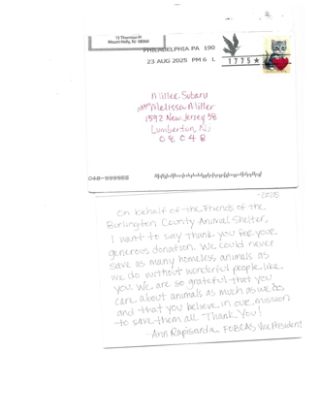 Mount Holly, NJ 08060
PHILADELPHIA PA 190
23 AUG 2025 PM 6 L
1775 ★
Miller Subaru
Melissa Miller
1592 New Jersey 38
Lumberton, NJ
08048
-2025
On behalf of the Friends of the
Burlington County Animal Shelter,
I want to say thank you for your
generous donation. We could never
save as many homeless animals as
we do without wonderful people like
you. We are so grateful that you
care about animals as much as we do
and that you believe in our mission
to save them all. Thank You!
-Ann Rapisarda, FOBCAS Vice President